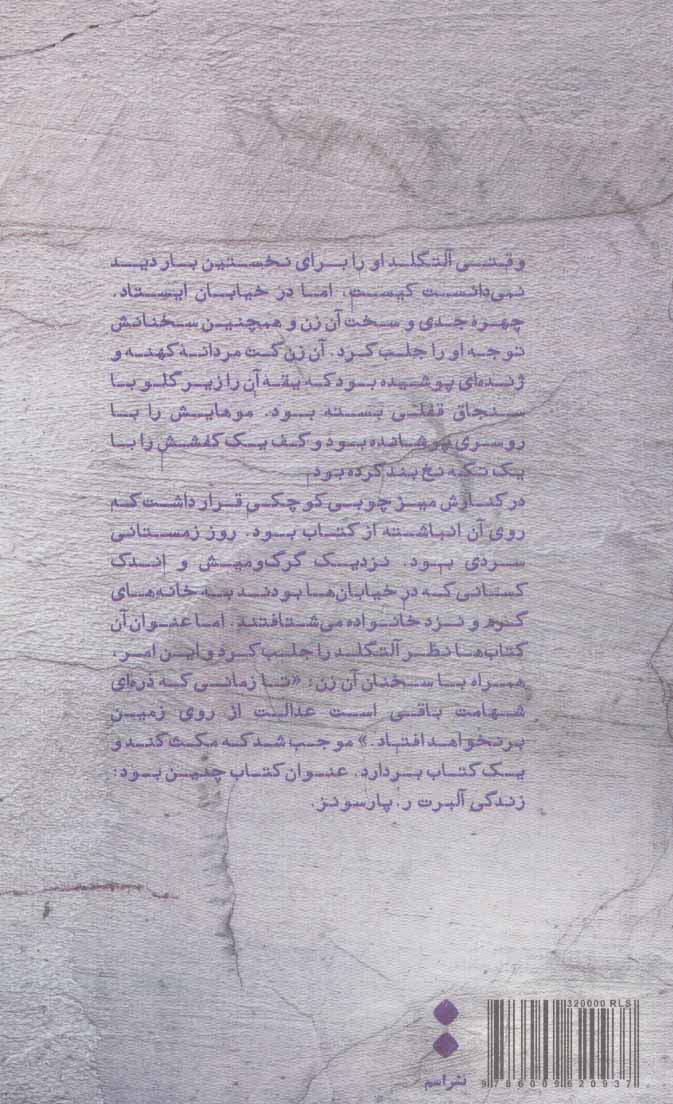 وقتی آلتگلد او را برای نخستین بار دید
نمی‌دانست کیست، اما در خیابان ایستاد.
چهره جدی و سخت آن زن و همچنین سخنانش
توجه او را جلب کرد. آن زن کت مردانهٔ کهنه و
ژنده‌ای پوشیده بود که یقه آن را زیر گلو با
سنجاق قفلی بسته بود. موهایش را با
روسری پوشانده بود و کف یک کفشش را با
یک تکه نخ بند کرده بود.
در کنارش میز چوبی کوچکی قرار داشت که
روی آن انباشته از کتاب بود. روز زمستانی
سردی بود. نزدیک گرگ‌ومیش و اندک
کسانی که در خیابان‌ها بودند به خانه‌های
گرم و نزد خانواده می‌شتافتند. اما عنوان آن
کتاب‌ها نظر آلتگلد را جلب کرد و این امر،
همراه با سخنان آن زن: «تا زمانی که ذره‌ای
شهامت باقی است عدالت از روی زمین
برنخواهد افتاد.» موجب شد که مکث کند و
یک کتاب بردارد. عنوان کتاب چنین بود:
زندگی آلبرت ر. پارسونز.
320000 RLS
نشر اسم
9786009620937